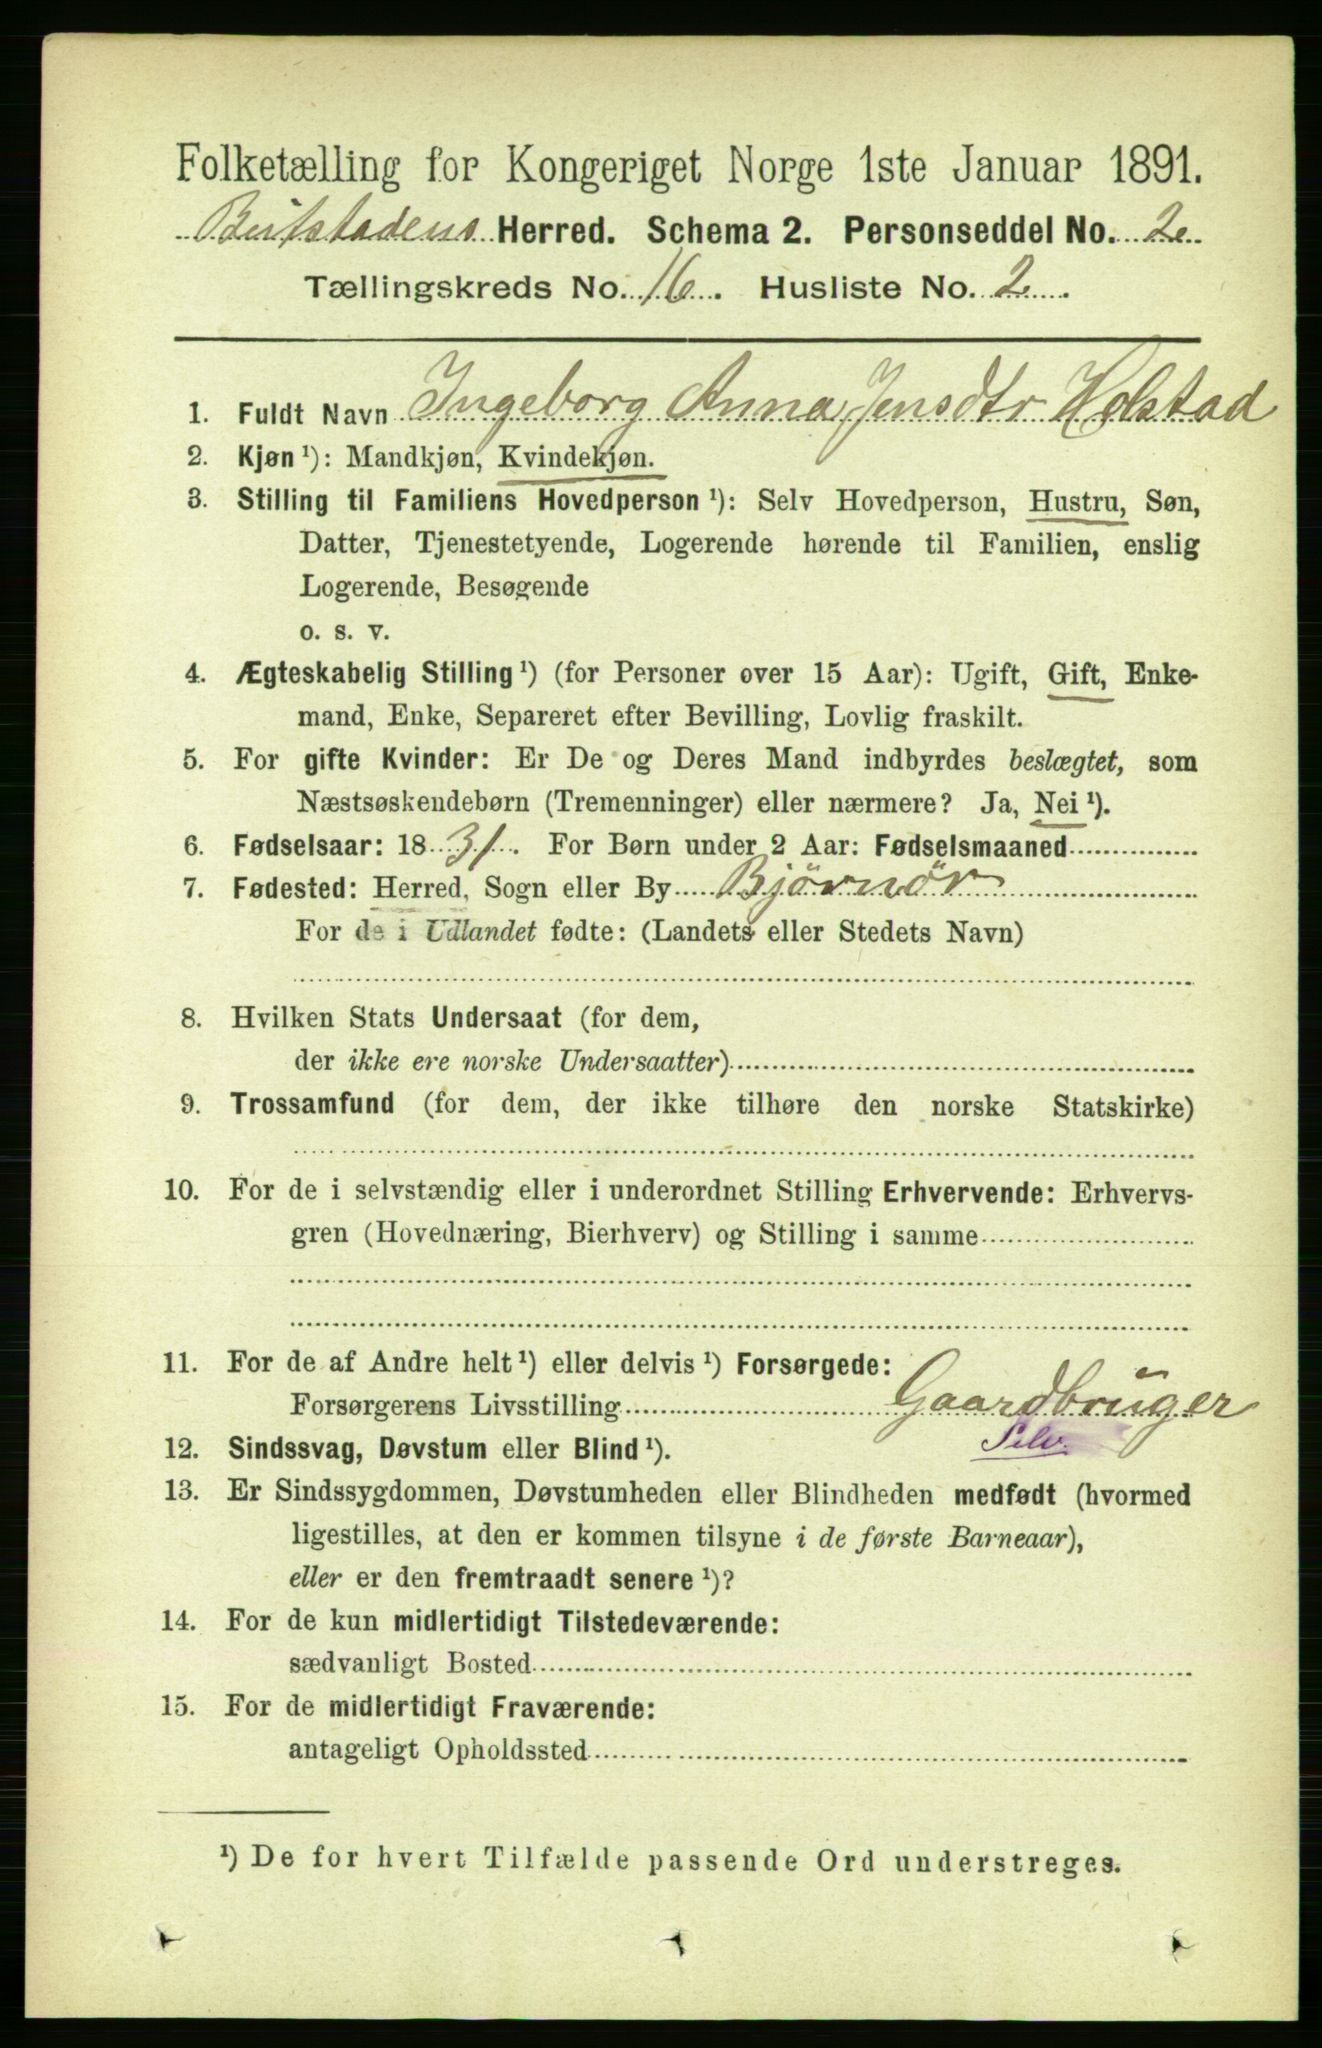 Folketælling for Kongeriget Norge 1ste Januar 1891.
Beitstadens Herred. Schema 2. Personseddel No. 2.
Tællingskreds No. 16. Husliste No. 2.
1. Fuldt Navn Ingeborg Anna Jensdtr Holstad
2. Kjøn ¹): Mandkjøn, Kvindekjøn.
3. Stilling til Familiens Hovedperson ¹): Selv Hovedperson, Hustru, Søn,
Datter, Tjenestetyende, Logerende hørende til Familien, enslig
Logerende, Besøgende
o. s. v.
4. Ægteskabelig Stilling ¹) (for Personer over 15 Aar): Ugift, Gift, Enke-
mand, Enke, Separeret efter Bevilling, Lovlig fraskilt.
5. For gifte Kvinder: Er De og Deres Mand indbyrdes beslægtet, som
Næstsøskendebørn (Tremenninger) eller nærmere? Ja, Nei ¹).
6. Fødselsaar: 1831. For Børn under 2 Aar: Fødselsmaaned
7. Fødested: Herred, Sogn eller By Bjørnör
For de i Udlandet fødte: (Landets eller Stedets Navn)
8. Hvilken Stats Undersaat (for dem,
der ikke ere norske Undersaatter)
9. Trossamfund (for dem, der ikke tilhøre den norske Statskirke)
10. For de i selvstændig eller i underordnet Stilling Erhvervende: Erhvervs-
gren (Hovednæring, Bierhverv) og Stilling i samme
11. For de af Andre helt ¹) eller delvis ¹) Forsørgede:
Forsørgerens Livsstilling Gaardbruger
Selv.
12. Sindssvag, Døvstum eller Blind ¹).
13. Er Sindssygdommen, Døvstumheden eller Blindheden medfødt (hvormed
ligestilles, at den er kommen tilsyne i de første Barneaar),
eller er den fremtraadt senere ¹)?
14. For de kun midlertidigt Tilstedeværende:
sædvanligt Bosted
15. For de midlertidigt Fraværende:
antageligt Opholdssted
¹) De for hvert Tilfælde passende Ord understreges.